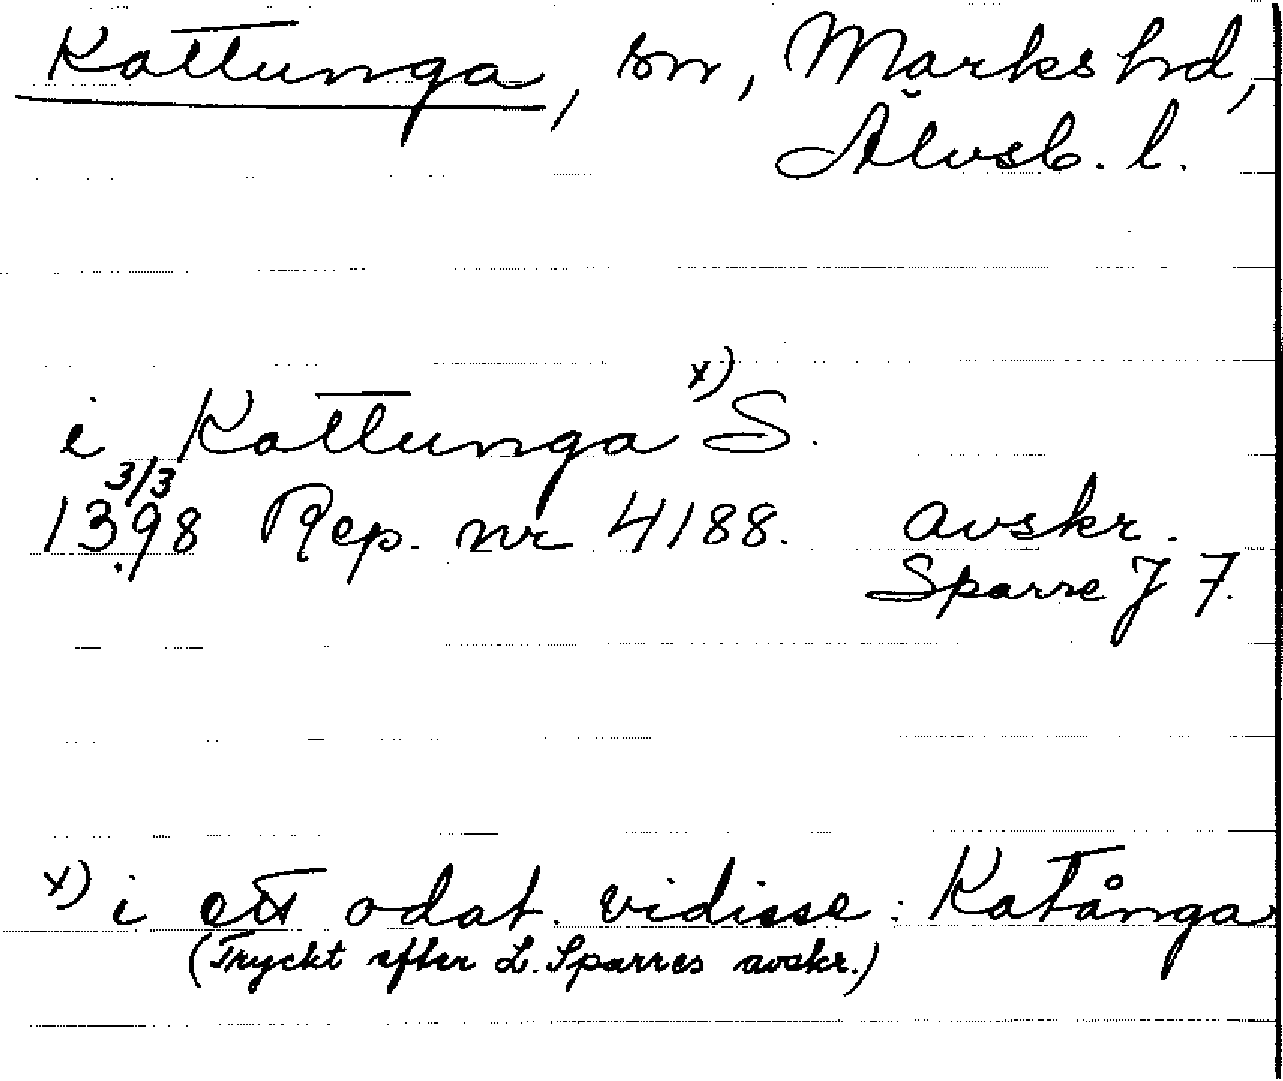 Kattunga, sn, Marks hd,
Älvsb. l.
i Kattunga x) S.
3/3
1398 Rep. nr 4188. avskr.
Sparre J 7.
x) i ett odat. vidisse: Katånga
(Tryckt efter L. Sparres avskr.)